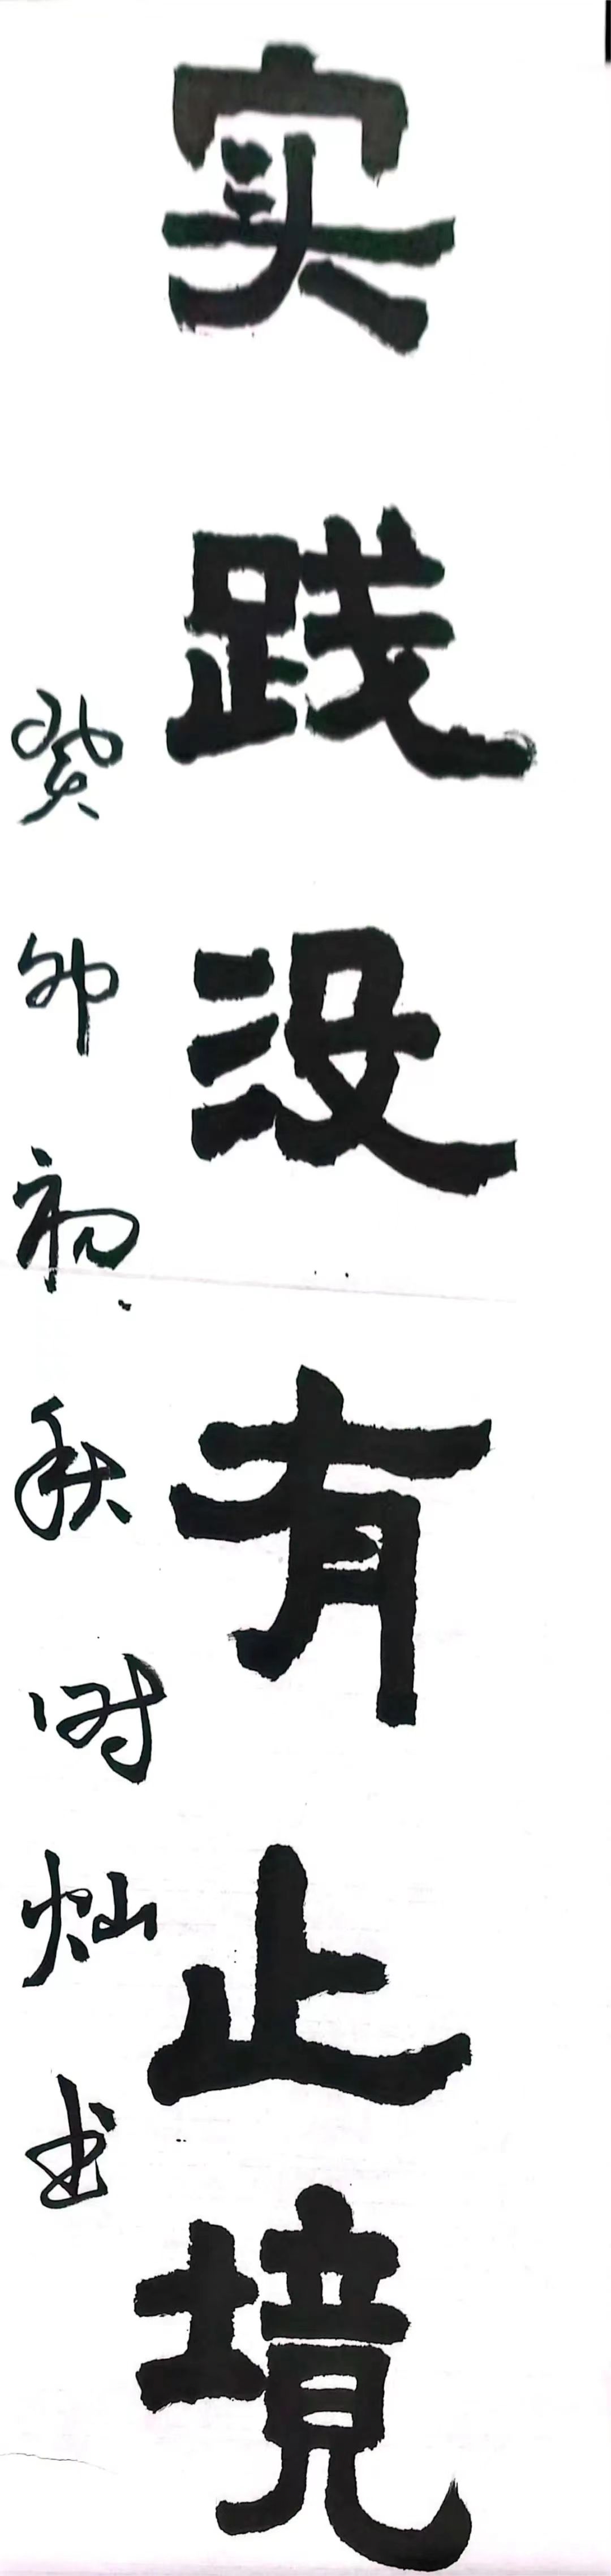 实践没有止境
癸卯初秋时灿书